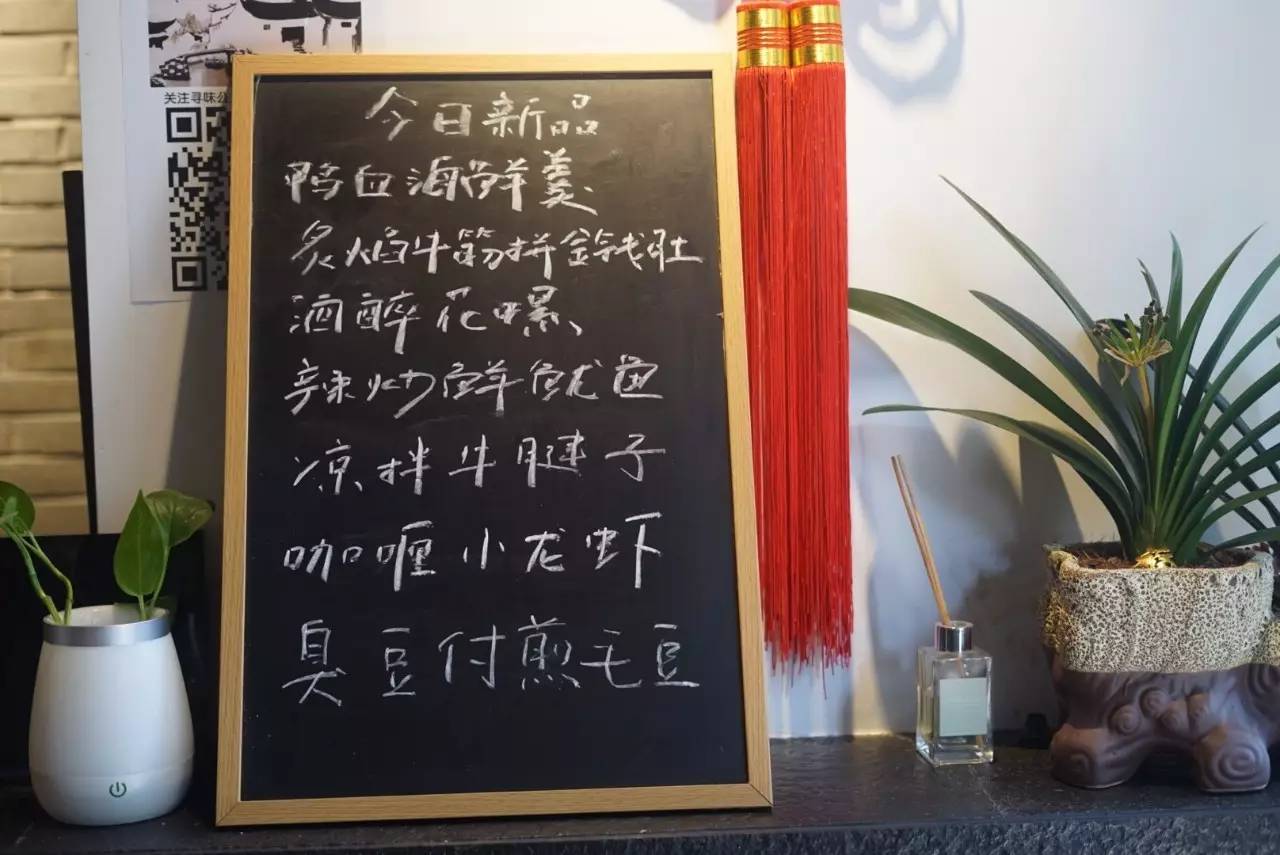 关注寻味公
今日新品
鸭血海鲜羹
炙焰牛筋拼金钱肚
酒醉花螺
辣炒鲜鱿鱼
凉拌牛腱子
咖喱小龙虾
臭豆付煎毛豆